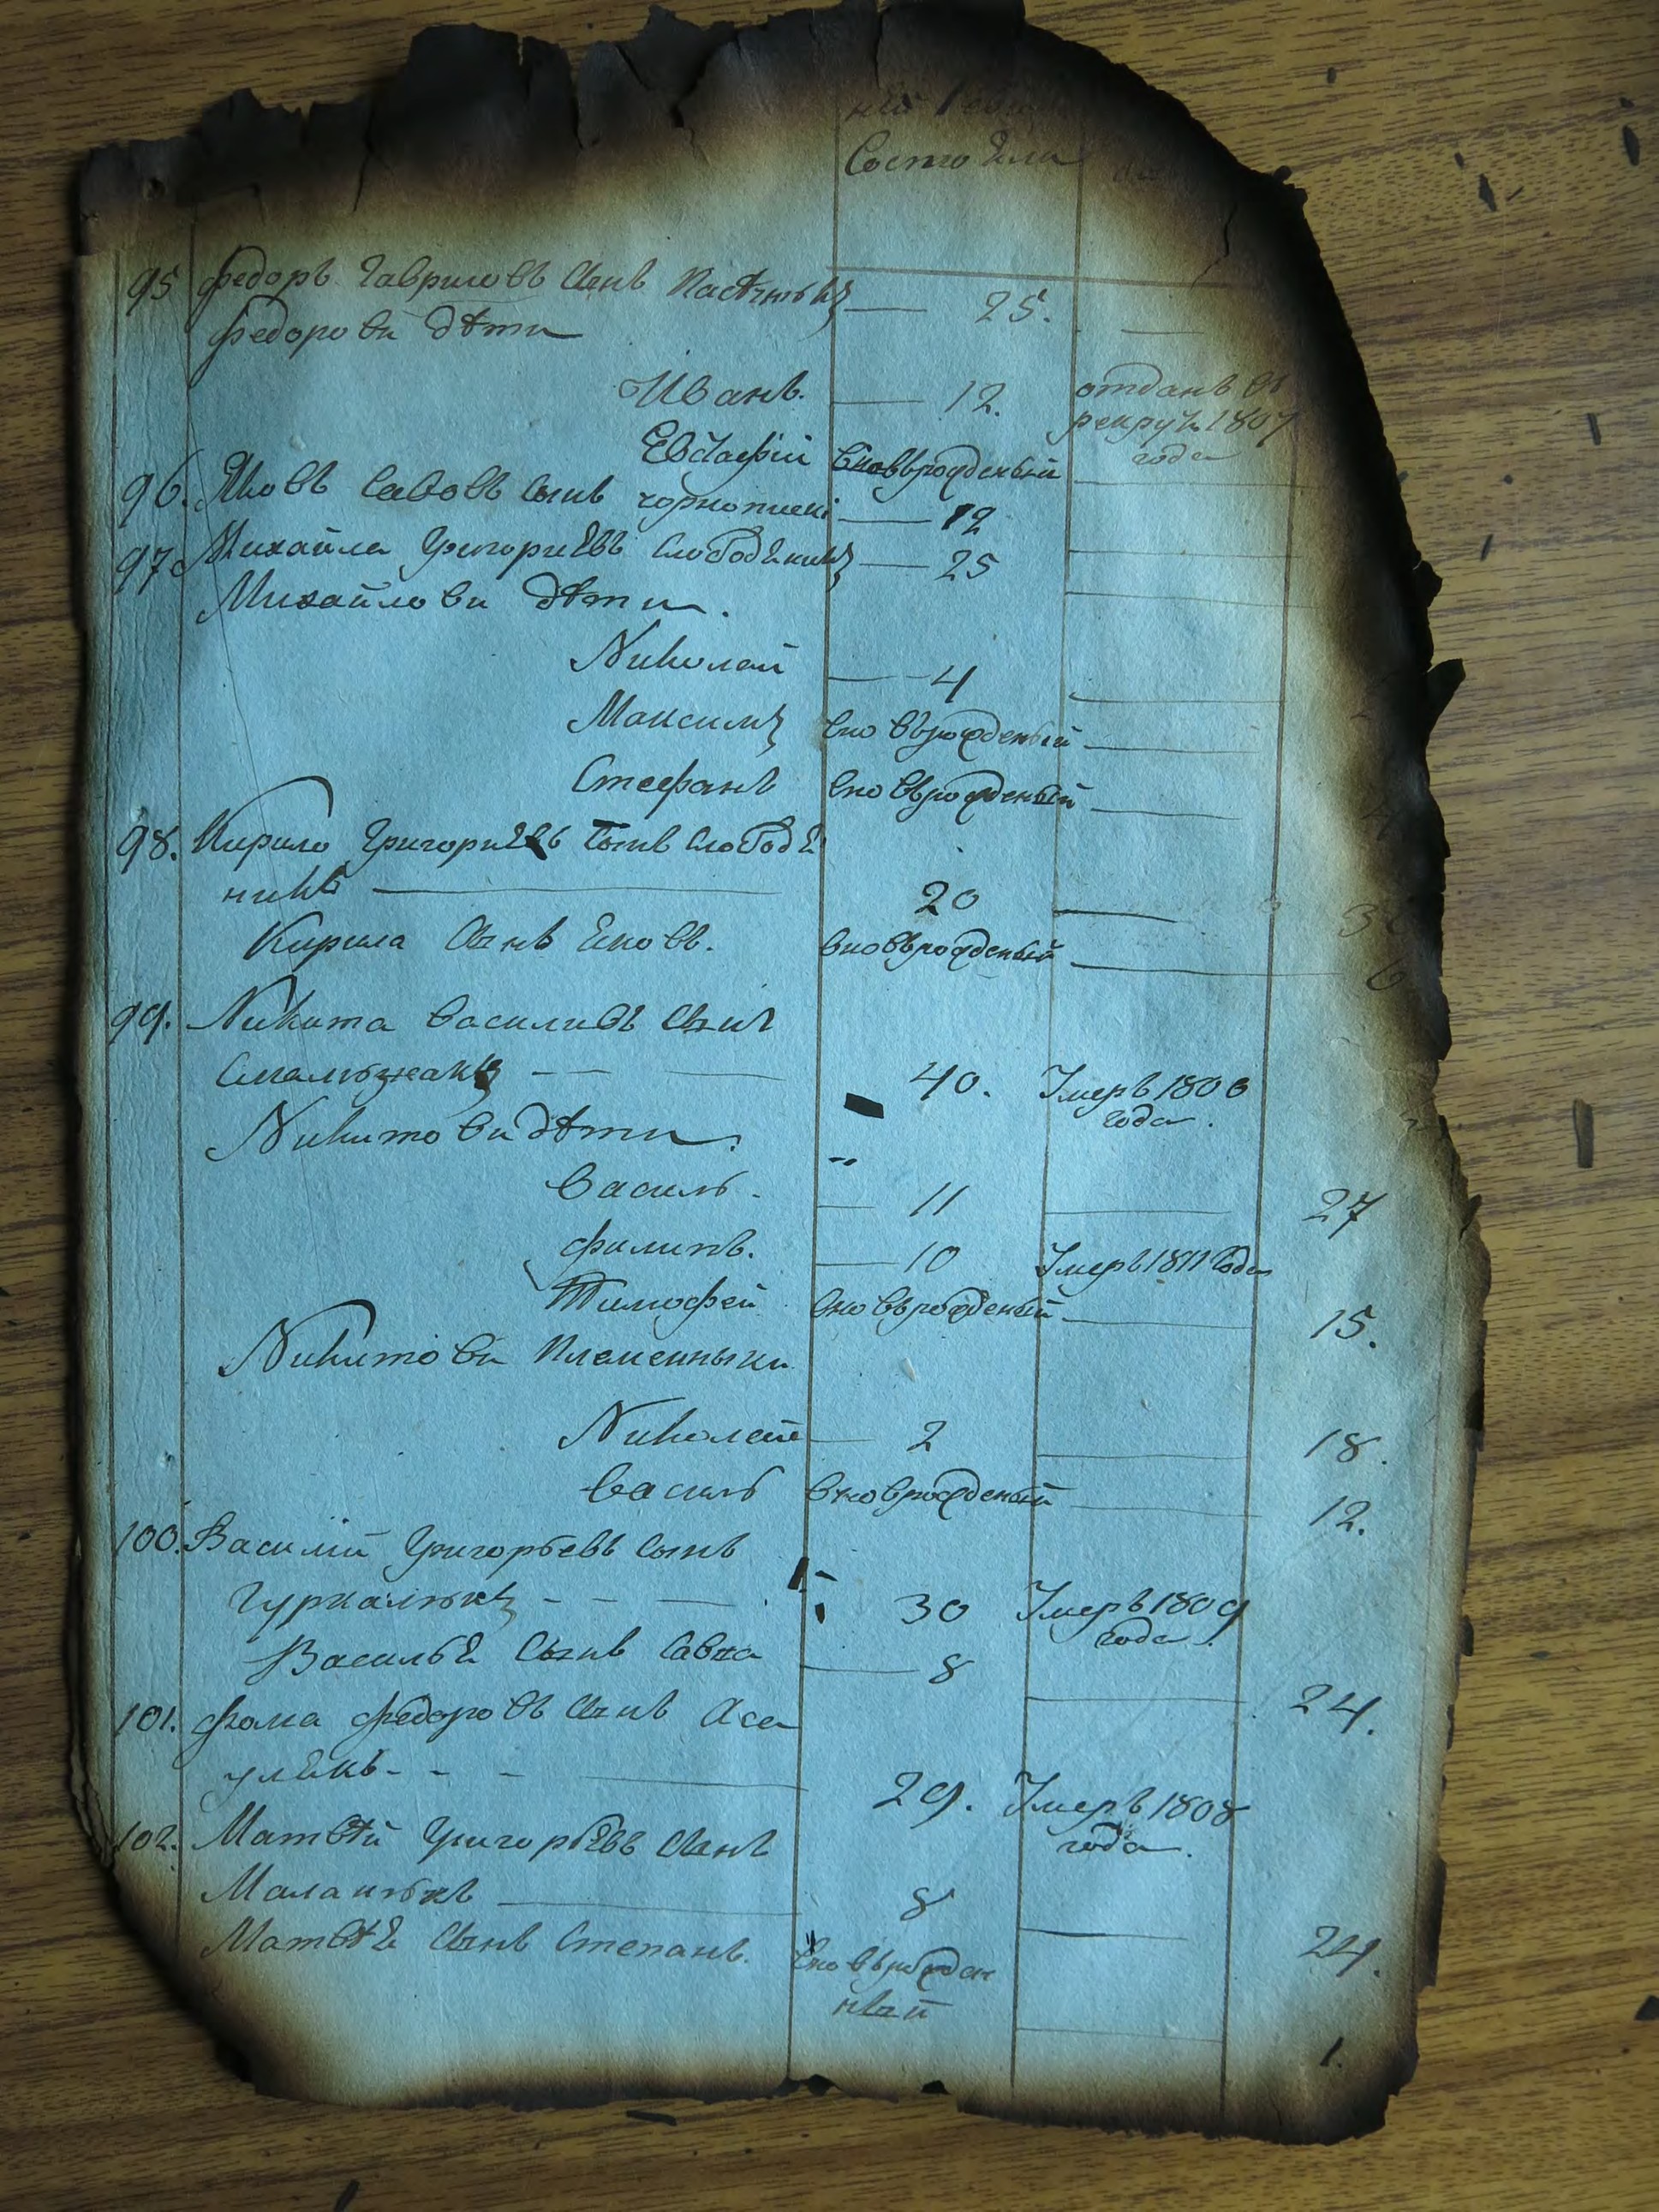 Состояли
95 Федоръ Гавриловъ Сынъ — 25.
Федорови дѣти
Иванъ. — 12. отданъ въ
рекруты 1807
года
Евстафій вновьрожденый
96. Яковъ Савовъ Сынъ — 12
97. Михайла Григориевъ Слободеникъ — 25
Михайлови дѣти.
Николай — 4
Максимъ вновьрожденый
Стефанъ вновьрожденый
98. Кирило Григориевъ Сынъ Слободе
никъ — 20
Кирила Сынъ Яковъ. вновьрожденый
99. Никита Василивъ Сынъ
— 40. Умеръ 1806
года.
Никитови дѣти.
Василь. — 11 27
Филипъ. — 10 Умеръ 1811 Года
Тимофей вновьрожденый 15.
Никитови Племенныки
Николай — 2 18.
Василь вновьрожденый 12.
100. Василій Григорьевъ Сынъ
Гуркалюкъ — 30 Умеръ 1809
года.
Василье Сынъ Савка — 8 24.
101. Фома Федоровъ Сынъ Аса
улекъ — 29. Умеръ 1808
года.
102. Матвѣй Григорьевъ Сынъ
Маланюкъ — 8 24.
Матвѣе Сынъ Степанъ. вновьрожден
ный 1.